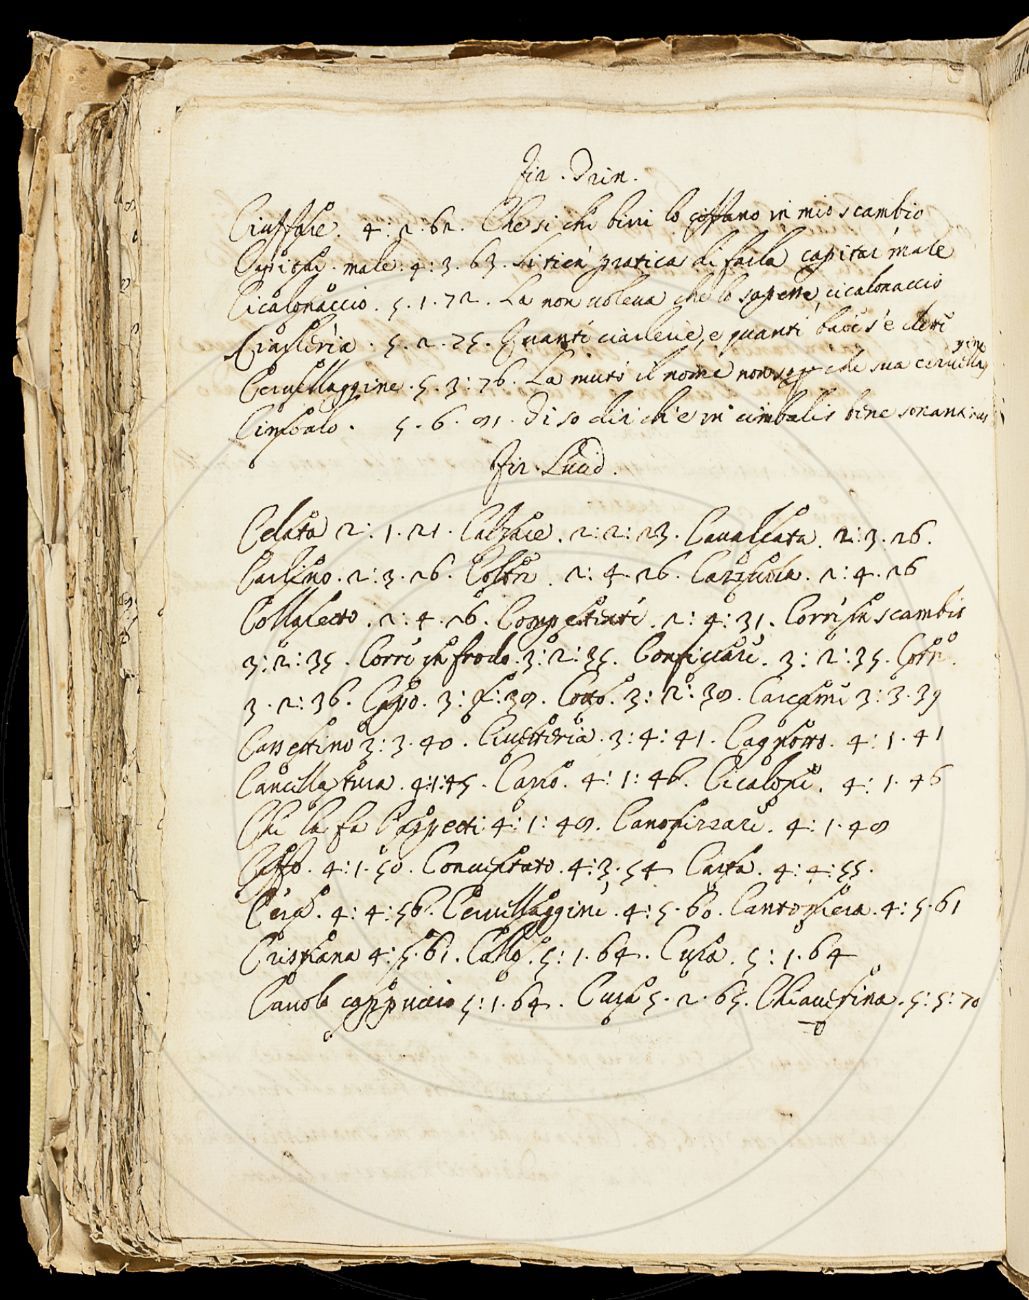 Fir. Trin.
Ciuffare. 4:2:62. Che si che bini lo ciffano in mio scambio
Capitar male. 4:3.63. si tien pratica di farla capitar male
Cicalonaccio. 5.1.72. La non voleva che lo sapesse, cicalonaccio
Ciarleria. 5.2.75. Quanti ciarlerie, e quanti baci s'è
Cervellaggine. 5.3:76. La mutò il nome non che sua cervellaggine
Cimbalo. 5.6.91. Diso ch'è in cimbalis bene sonantibus
Fir. Lucid.
Celata 2:1.21. Calzare. 2:2:23. Cavalcata. 2:3.26.
Carlino. 2:3.26. Coltre. 2:4.26. 2:4.26
2:4.26. 2:4:31. Corre in scambio
3:2:35. Corre in frodo. 3:2:35. Conficcare. 3:2:35.
3.2:36. Capo. 3:2:38. Cotto. 3:2:38. Carcame 3:3.39
Cassettino 3:3.40. Civetteria. 3:4:41. Cagnotto. 4:1.41
Cancillatura. 4:1:45. Carro. 4:1:46. Cicalone. 4:1.46
Che la fa 4:1:48. 4:1.48
Ceffo. 4:1.50. Convertato. 4:3.54 Carta. 4:4:55.
Cera. 4:4:56. Cervellaggine. 4:5.60. Cantoniera. 4:5.61
Cristiana 4:5.61. Callo. 5:1.64. Cura. 5:1.64
Cavolo cappuccio 5:1.64. Cura 5.2.65. Chiavesina. 5:5:70